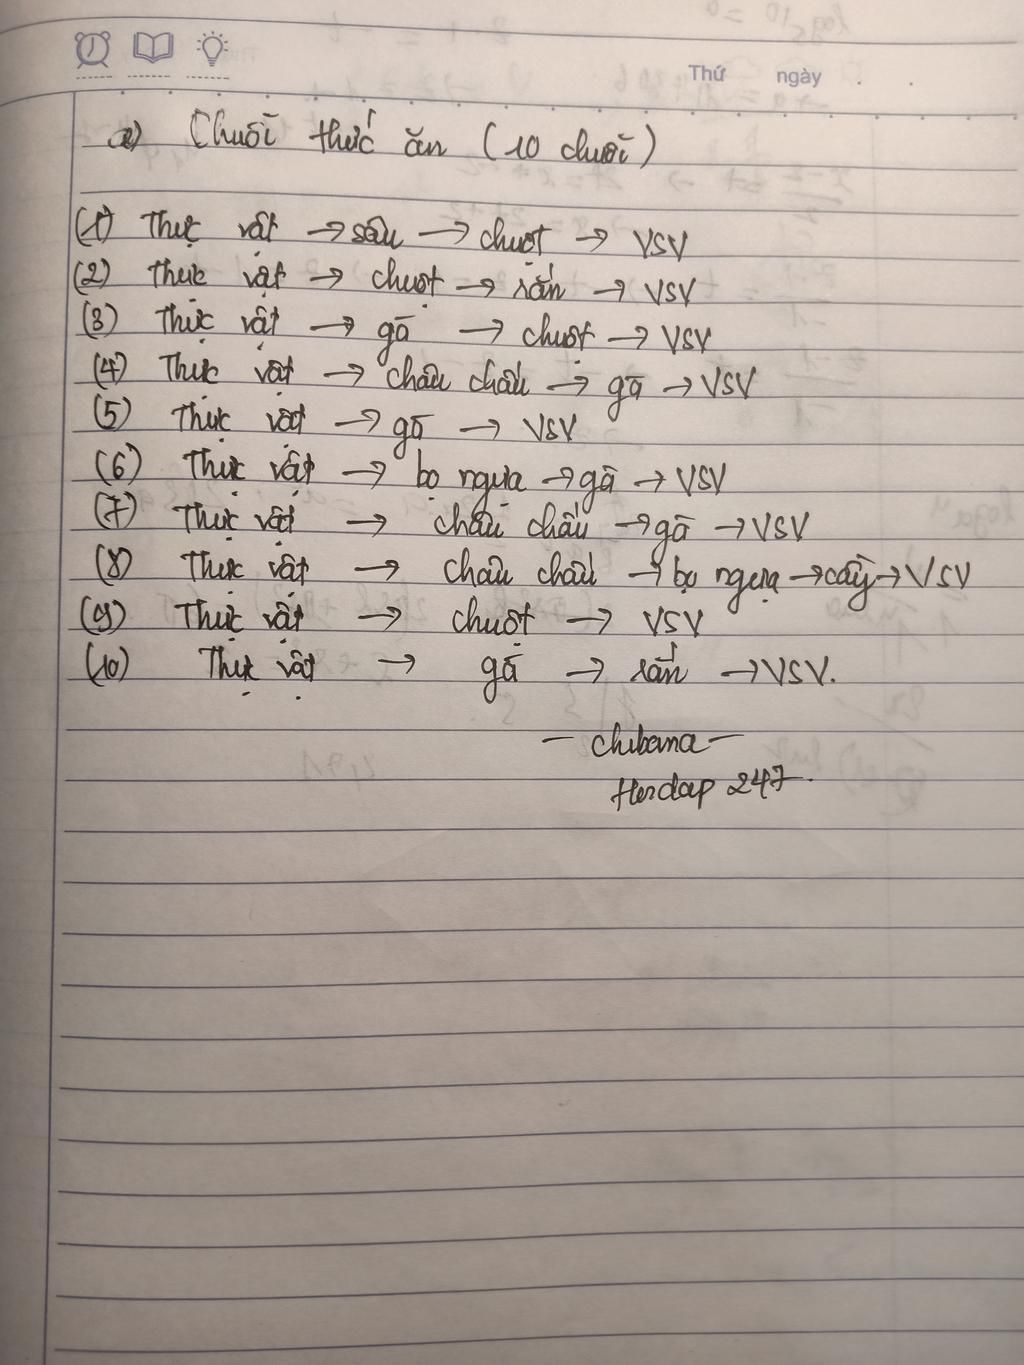 Thứ ngày . .
a) Chuỗi thức ăn (10 chuỗi)
(1) Thực vật → sâu → chuột → VSV
(2) Thực vật → chuột → rắn → VSV
(3) Thực vật → gà → chuột → VSV
(4) Thực vật → châu chấu → gà → VSV
(5) Thực vật → gà → VSV
(6) Thực vật → bọ ngựa → gà → VSV
(7) Thực vật → châu chấu → gà → VSV
(8) Thực vật → châu chấu → bọ ngựa → cầy → VSV
(9) Thực vật → chuột → VSV
(10) Thực vật → gà → rắn → VSV.
— chibana —
Hoidap 247.